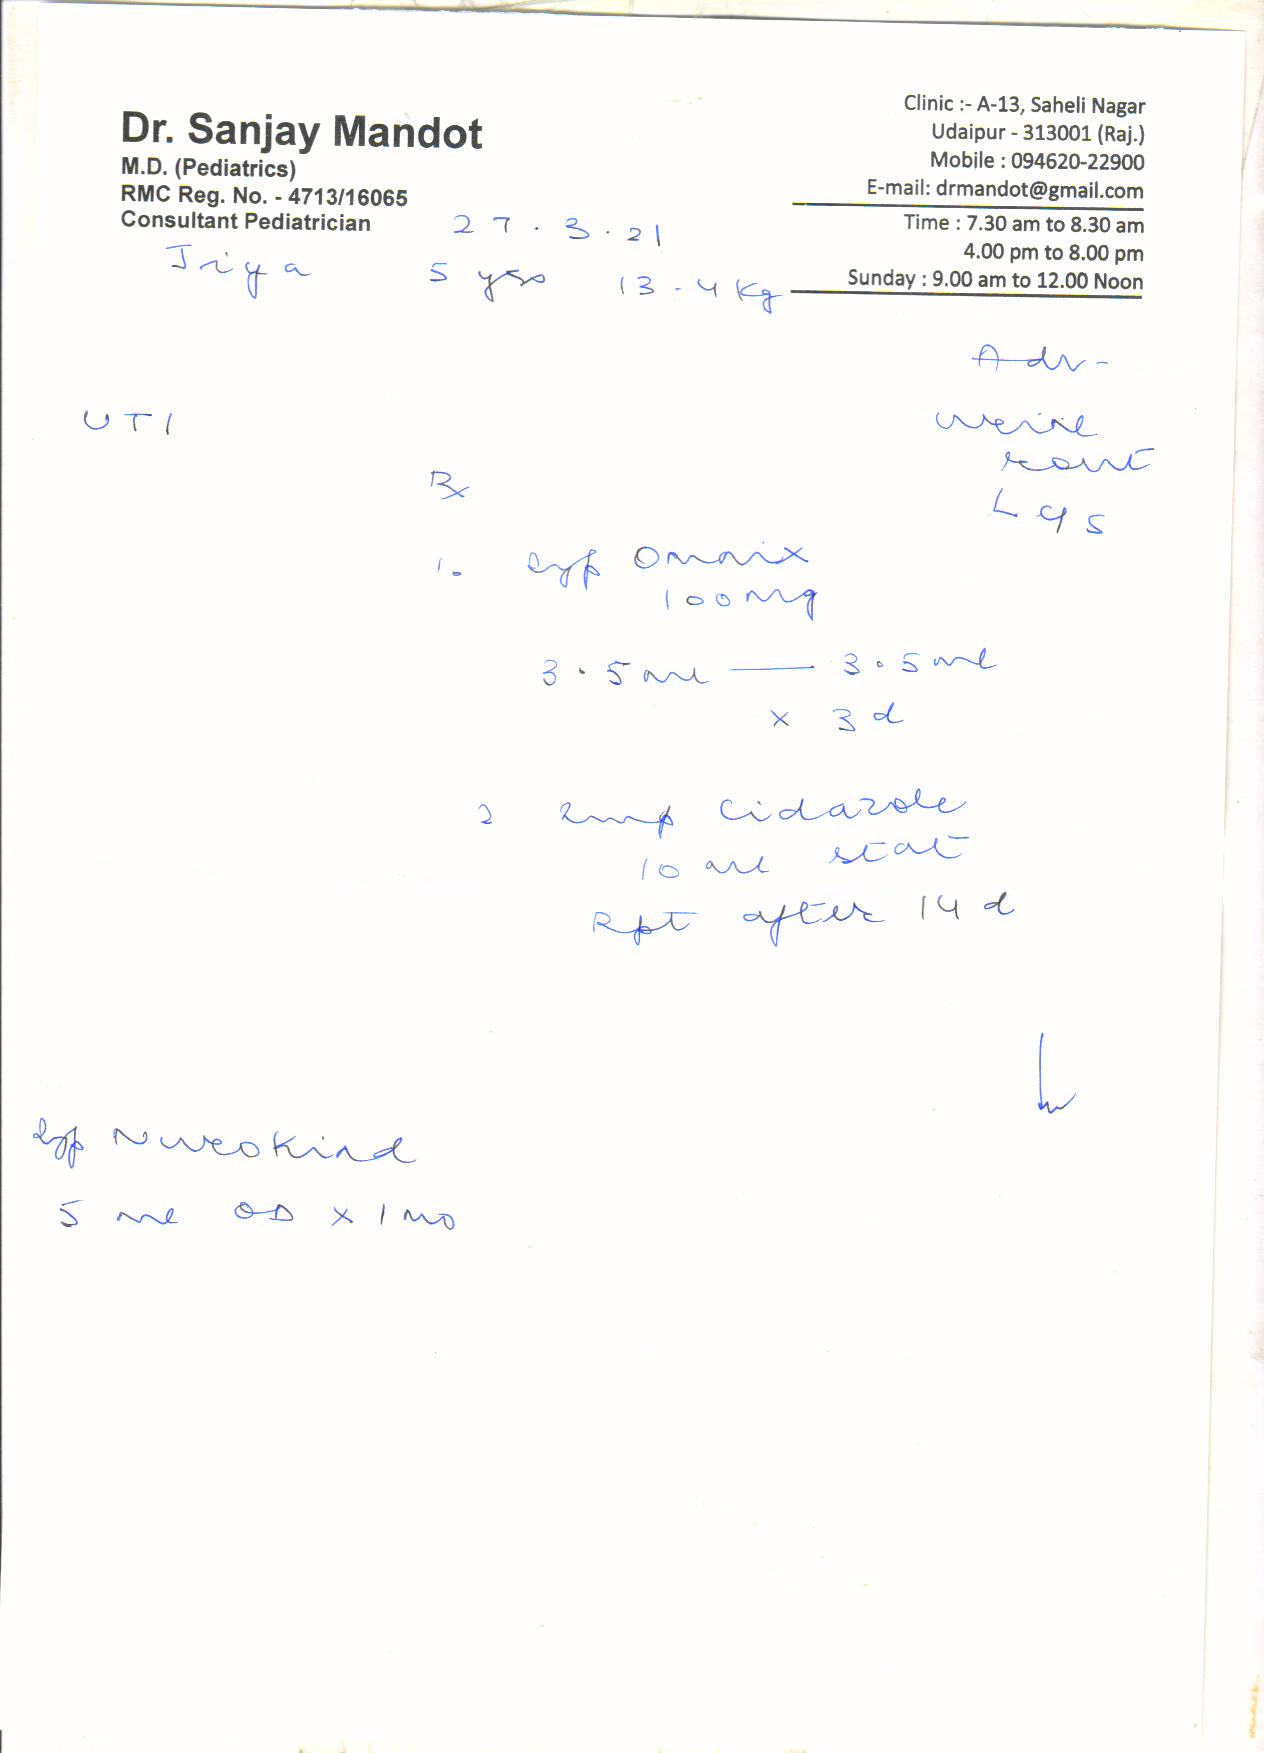 Dr. Sanjay Mandot
M.D. (Pediatrics)
RMC Reg. No. - 4713/16065
Consultant Pediatrician
Clinic :- A-13, Saheli Nagar
Udaipur - 313001 (Raj.)
Mobile : 094620-22900
E-mail: drmandot@gmail.com
Time : 7.30 am to 8.30 am
4.00 pm to 8.00 pm
Sunday : 9.00 am to 12.00 Noon
27.3.21
Jiya 5 yrs 13.4 kg
Adv-
UTI
urine
Rx
1. Syp Omnix
100mg
3.5ml — 3.5ml
x 3d
2 Susp Cidazole
10 ml stat
Rpt after 14 d
Syp Nurokind
5 ml OD x 1 mo